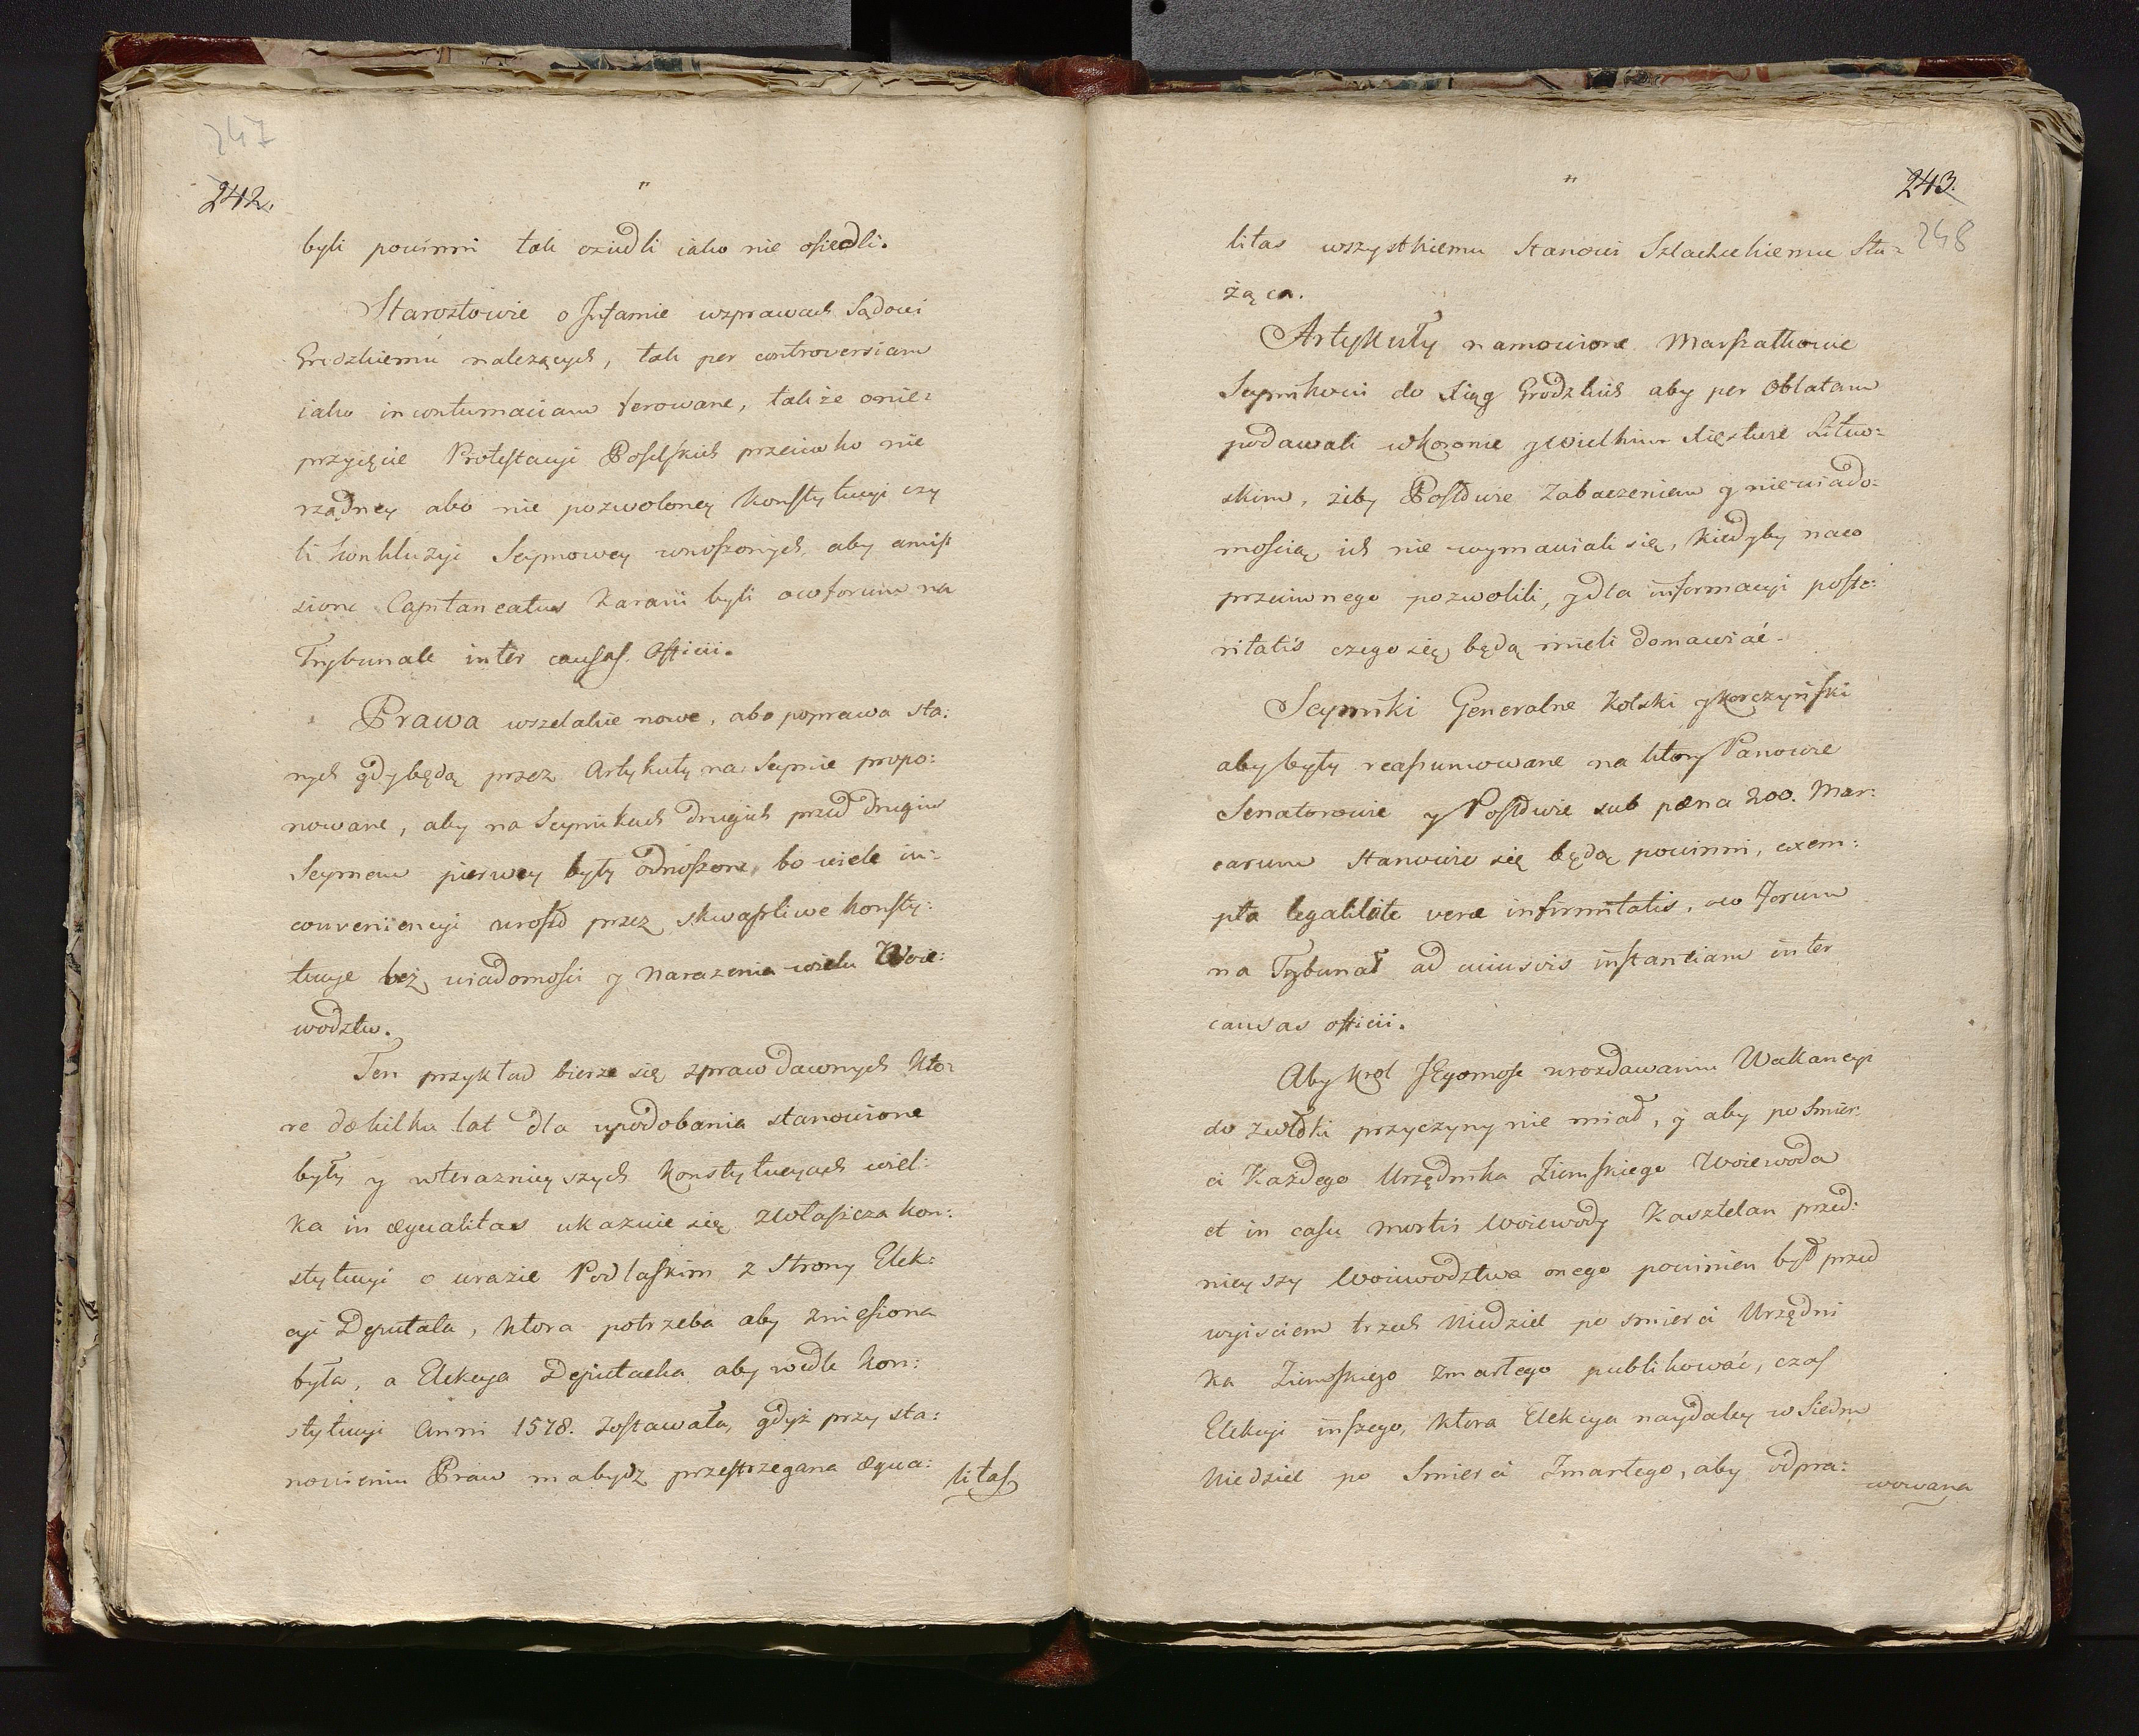 247
242.
"
byli powinni tak osiedli iako nie osiedli.
Starostowie o Infamie wsprawach Sądowi
Grodzkiemu nalezących, tak per controversiam
iako in contumaciam ferowane, takze onie=
przyięcie Protestacyi Poselskich przeciwko nie
rządney abo nie pozwoloney Konstytucyi czy
li konkluzyi Seymowey wnoszonych, aby amis
sione Capitaneatus Karani byli ac forum na
Trybunale inter causas Officii.
Prawa wszelakie nowe, abo poprawa sta:
rych gdy będą przez Artykuły na Seymie propo:
nowane, aby na Seymikach drugich przed drugim
Seymem pierwey były odnoszone, bo wiele in:
conveniencyi urosło przez skwapliwe konsty:
tucye bez wiadomości y narazenia wielu Woie:
wodztw.
Ten przykład bierze się zpraw dawnych Kto=
re do kilku lat dla upodobania stanowione
były y wteraznieyszych Konstytucyach wiel:
ka in æqualitas ukazuie się zwłaszcza kon:
stytucyi o urazie Podlaskim z strony Elek:
cyi Deputata, ktora potrzeba aby zniesiona
była, a Elekcya Deputacka aby wedle kon:
stytucyi Anni 1578. zostawała, gdyż przy sta:
nowieniu Praw ma bydz przestrzegana æqua:
litas
"
243.
248
litas wszystkiemu Stanowi Szlacheckiemu Słu=
żąca.
Artykuły namowione Marszałkowie
Seymikowi do Xiąg Grodzkich aby per Oblatam
podawali wKoronie y Wielkim Xięstwie Litew=
skim, żeby Posłowie Zabaczeniem y niewiado=
mością ich nie wymawiali się, kiedyby naco
przeciwnego pozwolili, y dla informacyi poste:
ritatis czego się będą mieli domawiać.
Seymiki Generalne Kolski y Korczyński
aby były reassumowane na ktory Panowie
Senatorowie y Posłowie sub pæna 200. Mar:
carum stanowic się będą powinni, exem:
pta legalitate veræ infirmitatis, ac Forum
na Trybunał ad cuiusvis instantiam inter
causas officii.
Aby Krol JEgomosc wrozdawaniu Wakancyi
do zwłoki przyczyny nie miał, y aby po smier:
ci Każdego Urzędnika Ziemskiego Woiewoda
et in casu mortis Woiewody Kasztelan przed:
nieyszy Woiewodztwa onego powinien był przed
wyisciem trzech Niedziel po smierci Urzędni
ka Ziemskiego zmarłego publikować, czas
Elekcyi inszego, ktora Elekcya naydaley w Siedm
Niedziel po Smierci Zmarłego, aby odpra:
wowana